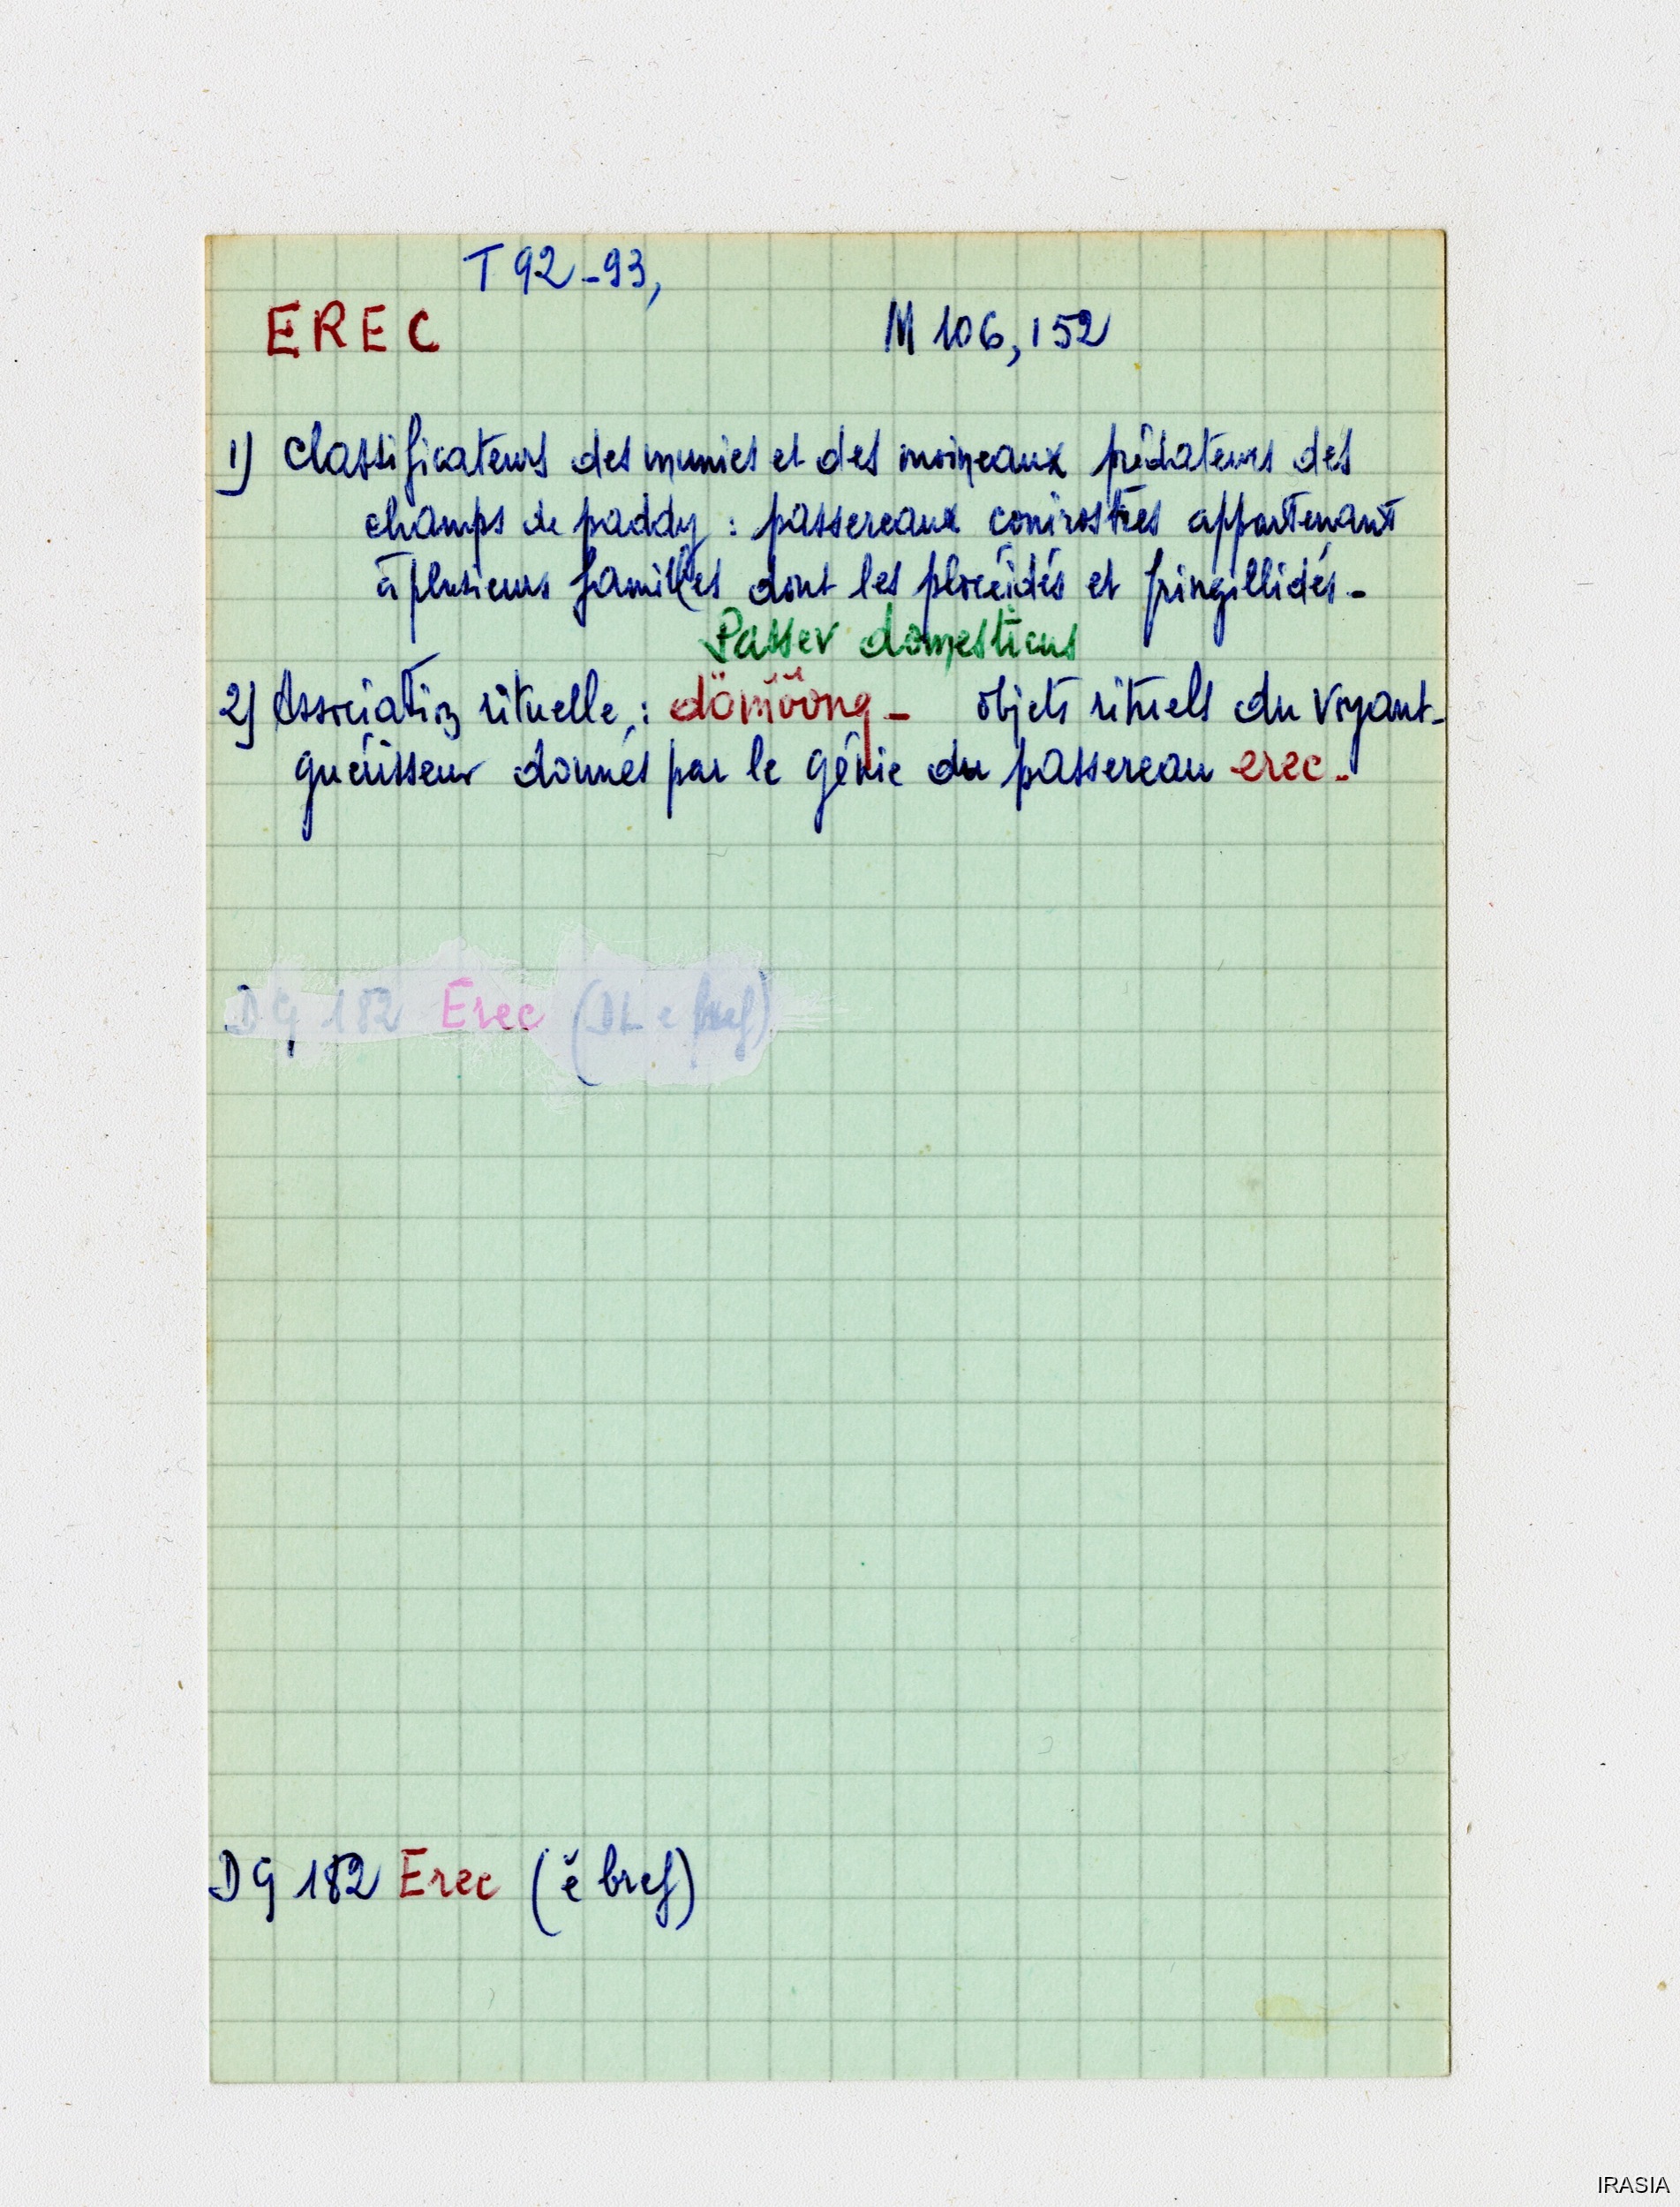 T 92-93,
EREC M 106, 152
1) Classificateurs des munies et des moineaux prédateurs des
champs de paddy : passereaux conirostres appartenant
à plusieurs familles dont les plocéidés et fringillidés -
Passer domesticus
2) Association rituelle : dömööng - objets rituels du voyant-
guérisseur donnés par le génie du passereau erec -
DG 182 Erec (DL e bref)
DG 182 Erec (ĕ bref)
IRASIA